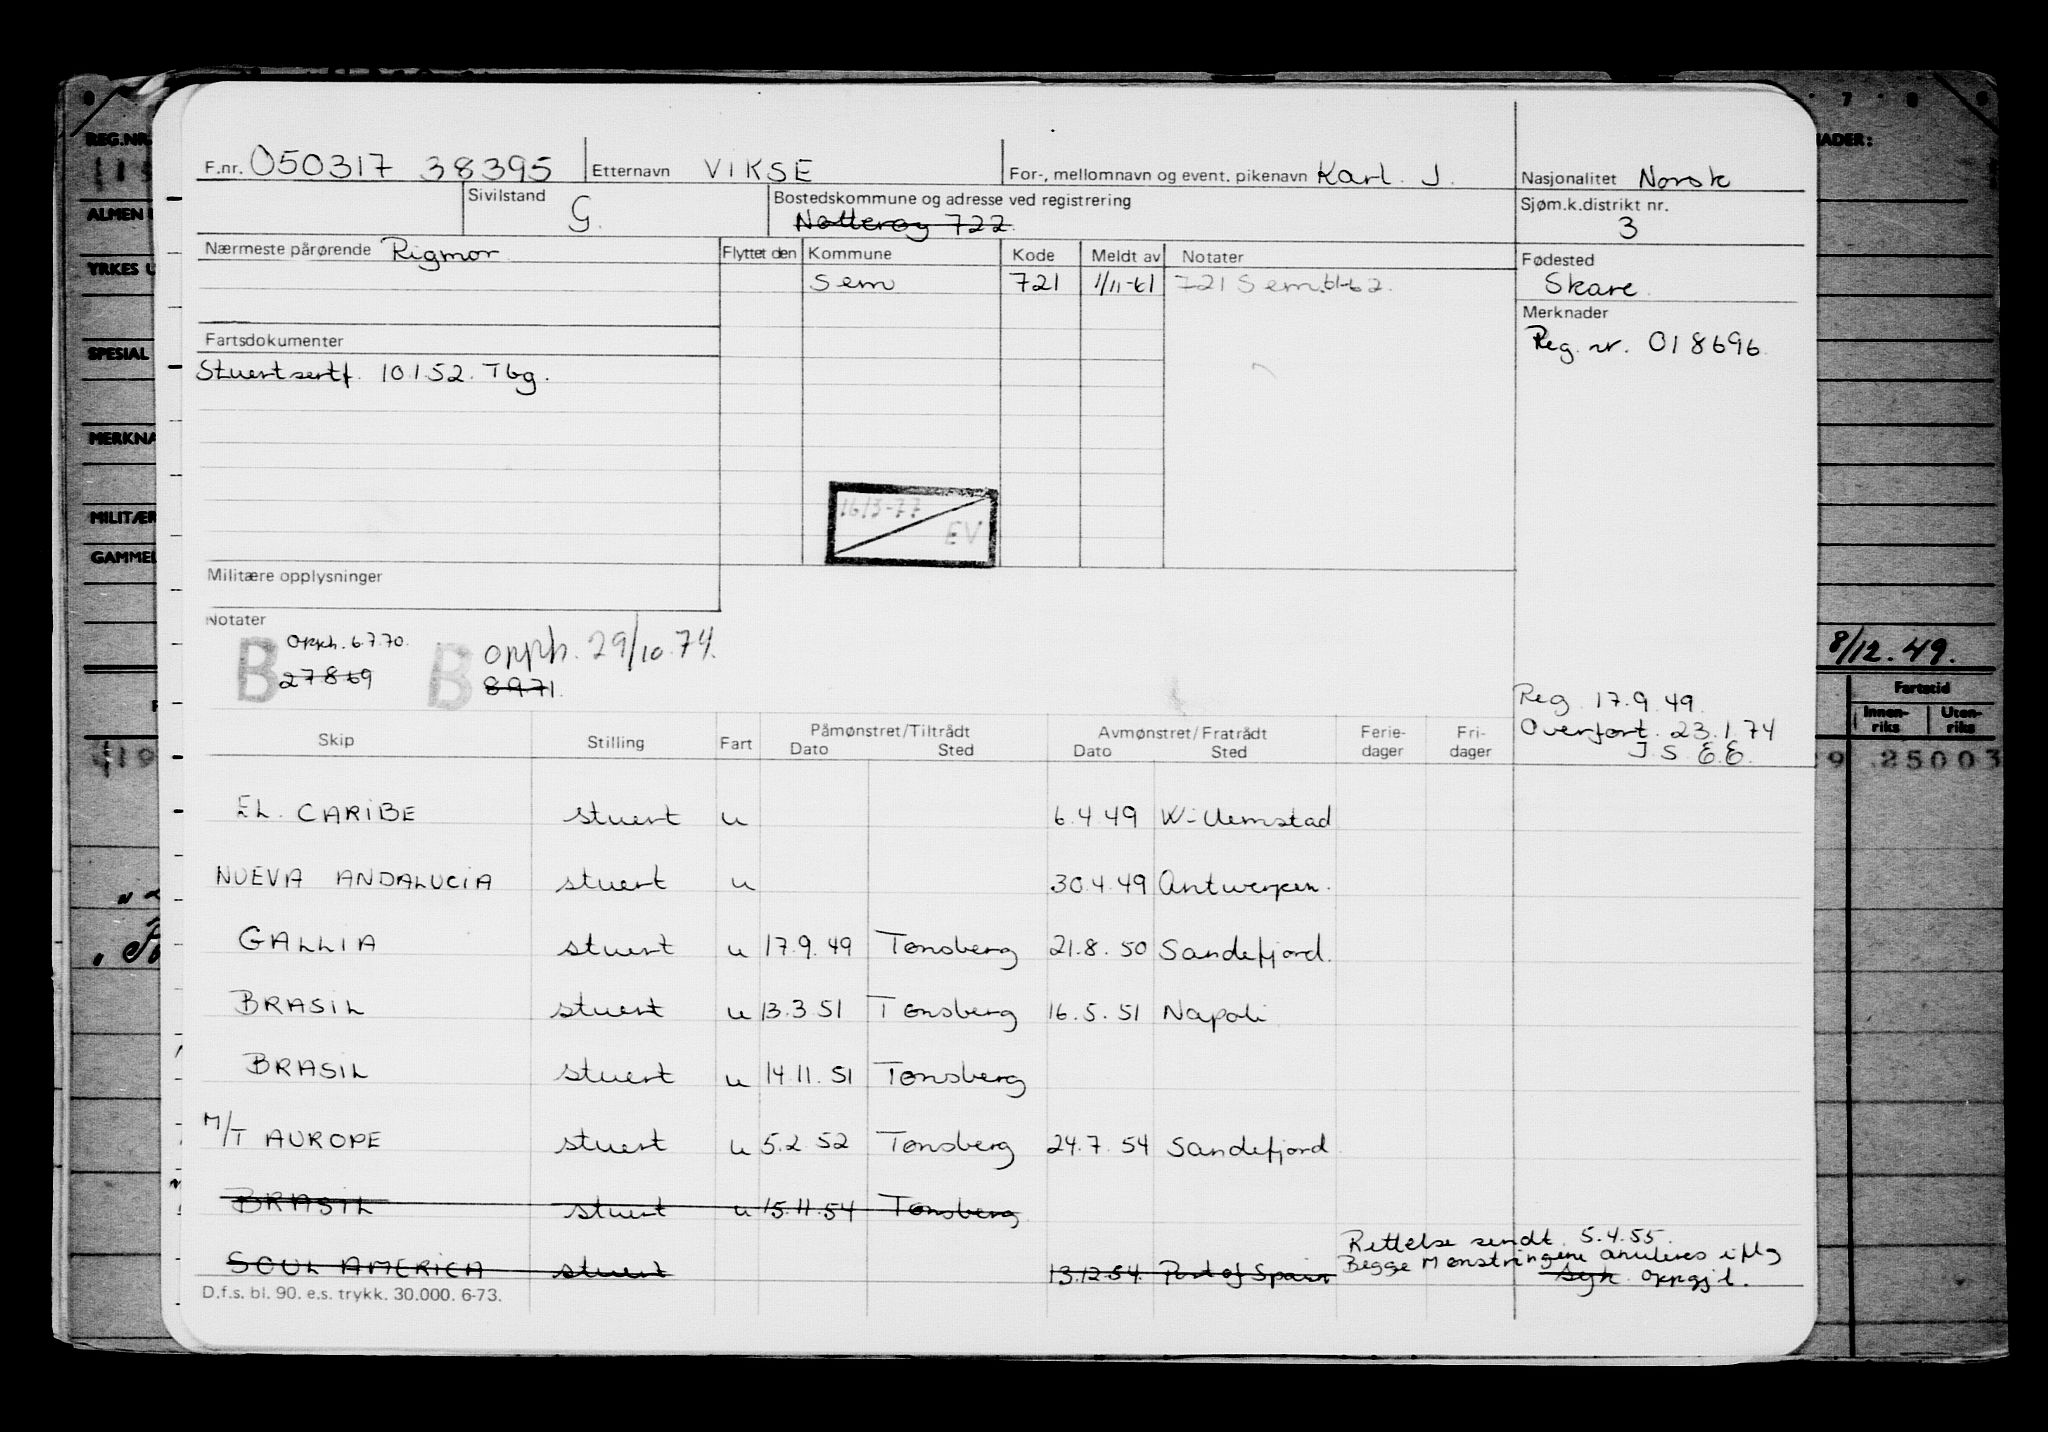 F.nr. 050317 38395 Etternavn VIKSE For-, mellomnavn og event. pikenavn Karl. J. Nasjonalitet Norsk
Sivilstand G. Bostedskommune og adresse ved registrering Nøtterøy 722 Sjøm.k.distrikt nr. 3
Nærmeste pårørende Rigmor Flyttet den Kommune Kode Meldt av Notater Fødested
Sem 721 1/11-61 721 Sem. 61-62. Skare.
Merknader
Reg. nr. 018696.
Fartsdokumenter
Stuertsertf. 10.1.52. Tbg.
16/3-77
EV
Militære opplysninger
Notater
B Opph. 6.7.70. B opph. 29/10.74.
27869 8971.
Reg. 17.9.49.
Overført. 23.1.74
J.S. E.E.
Skip Stilling Fart Påmønstret/Tiltrådt Avmønstret/Fratrådt Ferie- Fri-
Dato Sted Dato Sted dager dager
EL. CARIBE stuert u 6.4.49 Willemstad
NUEVA ANDALUCIA stuert u 30.4.49 Antwerpen.
GALLIA stuert u 17.9.49 Tønsberg 21.8.50 Sandefjord.
BRASIL stuert u 13.3.51 Tønsberg 16.5.51 Napoli
BRASIL stuert u 14.11.51 Tønsberg
M/T AUROPE stuert u 5.2.52 Tønsberg 24.7.54 Sandefjord
BRASIL stuert u 15.11.54 Tønsberg
SOUL AMERICA stuert 13.12.54. Port of Spain
Rettelse sendt. 5.4.55.
Begge Mønstringene anuleres iflg
syk. oppgjl.
D.f.s. bl. 90. e.s. trykk. 30.000. 6-73.
REG.NR.
ALMEN
YRKES U
SPESIAL
MERKNA
MILITÆR
GAMMEL
7 8 9
NADER:
8/12.49.
Fartstid
Innen-riks Uten-riks
9 25003